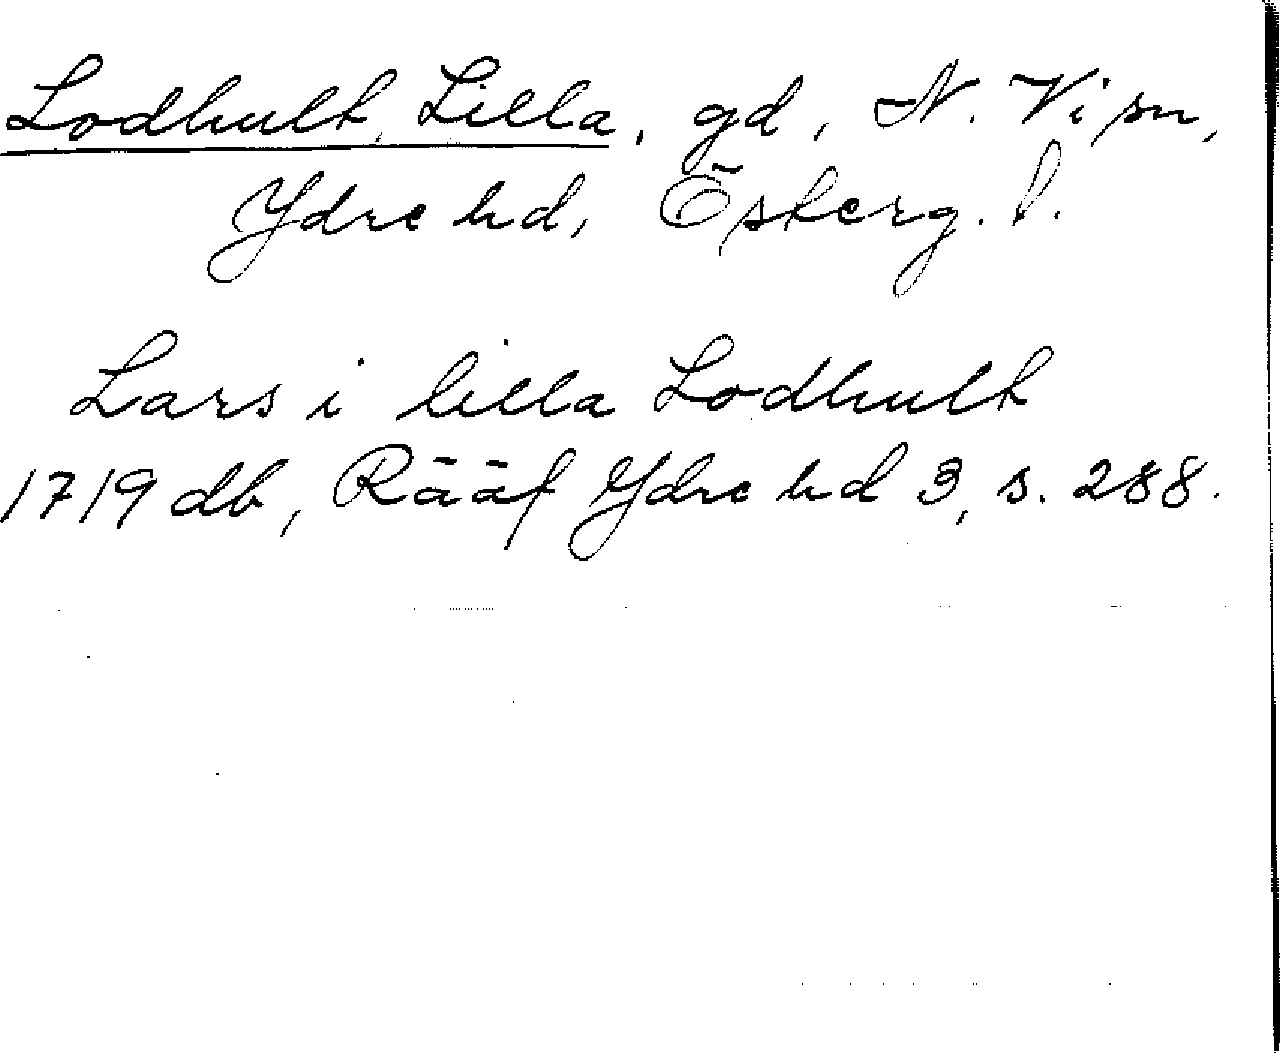 Lodhult, Lilla, gd, N. Vi sn,
Ydre hd, Österg. l.
Lars i lilla Lodhult
1719 db, Rääf Ydre hd 3, s. 288.